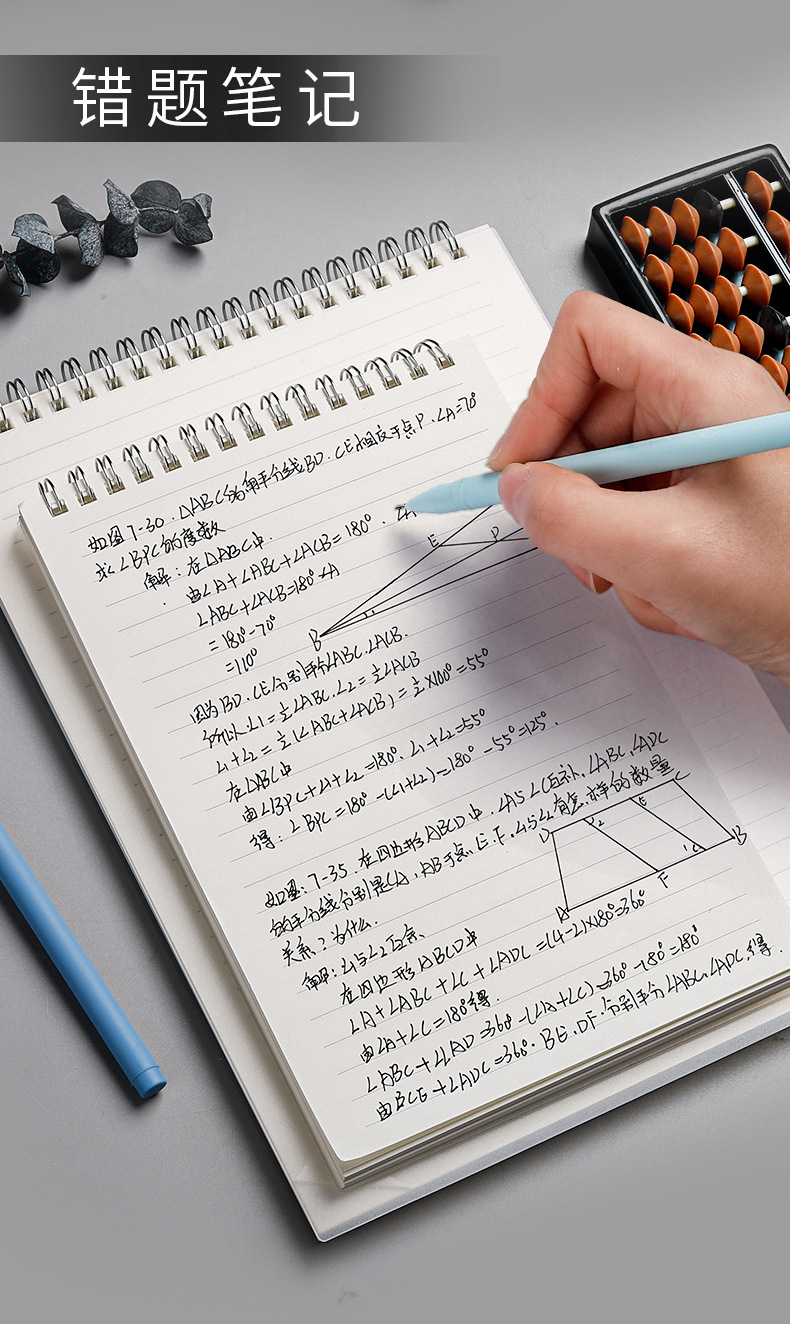 错题笔记
如图7-30.△ABC的角平分线BD.CE相交于点P.∠A=70°
求∠BPC的度数
解:在△ABC中.
由∠A+∠ABC+∠ACB=180°.∠A
∠ABC+∠ACB=180°-∠A
=180°-70°
=110°
E
P
B
因为BD.CE分别平分∠ABC.∠ACB.
所以∠1=½∠ABC.∠2=½∠ACB
∠1+∠2=½(∠ABC+∠ACB)=½×100°=55°
在△ABC中
由∠BPC+∠1+∠2=180°.∠1+∠2=55°
得:∠BPC=180°-(∠1+∠2)=180°-55°=125°.
如图:7-35.在四边形ABCD中.∠A与∠C互补.∠ABC,∠ADC
的平分线分别是CA,AB于点.E.F.∠1与∠2有怎样的数量
关系?为什么.
D
2
E
C
B
1
F
A
解:∠1与∠2互余.
在四边形ABCD中
∠A+∠ABC+∠C+∠ADC=(4-2)×180°=360°
由∠A+∠C=180°得.
∠ABC+∠LAD=360°-(∠A+∠C)=360°-180°=180°
由BCE+∠ADC=360°.BE.DF.分别平分∠ABC,∠ADC,得.